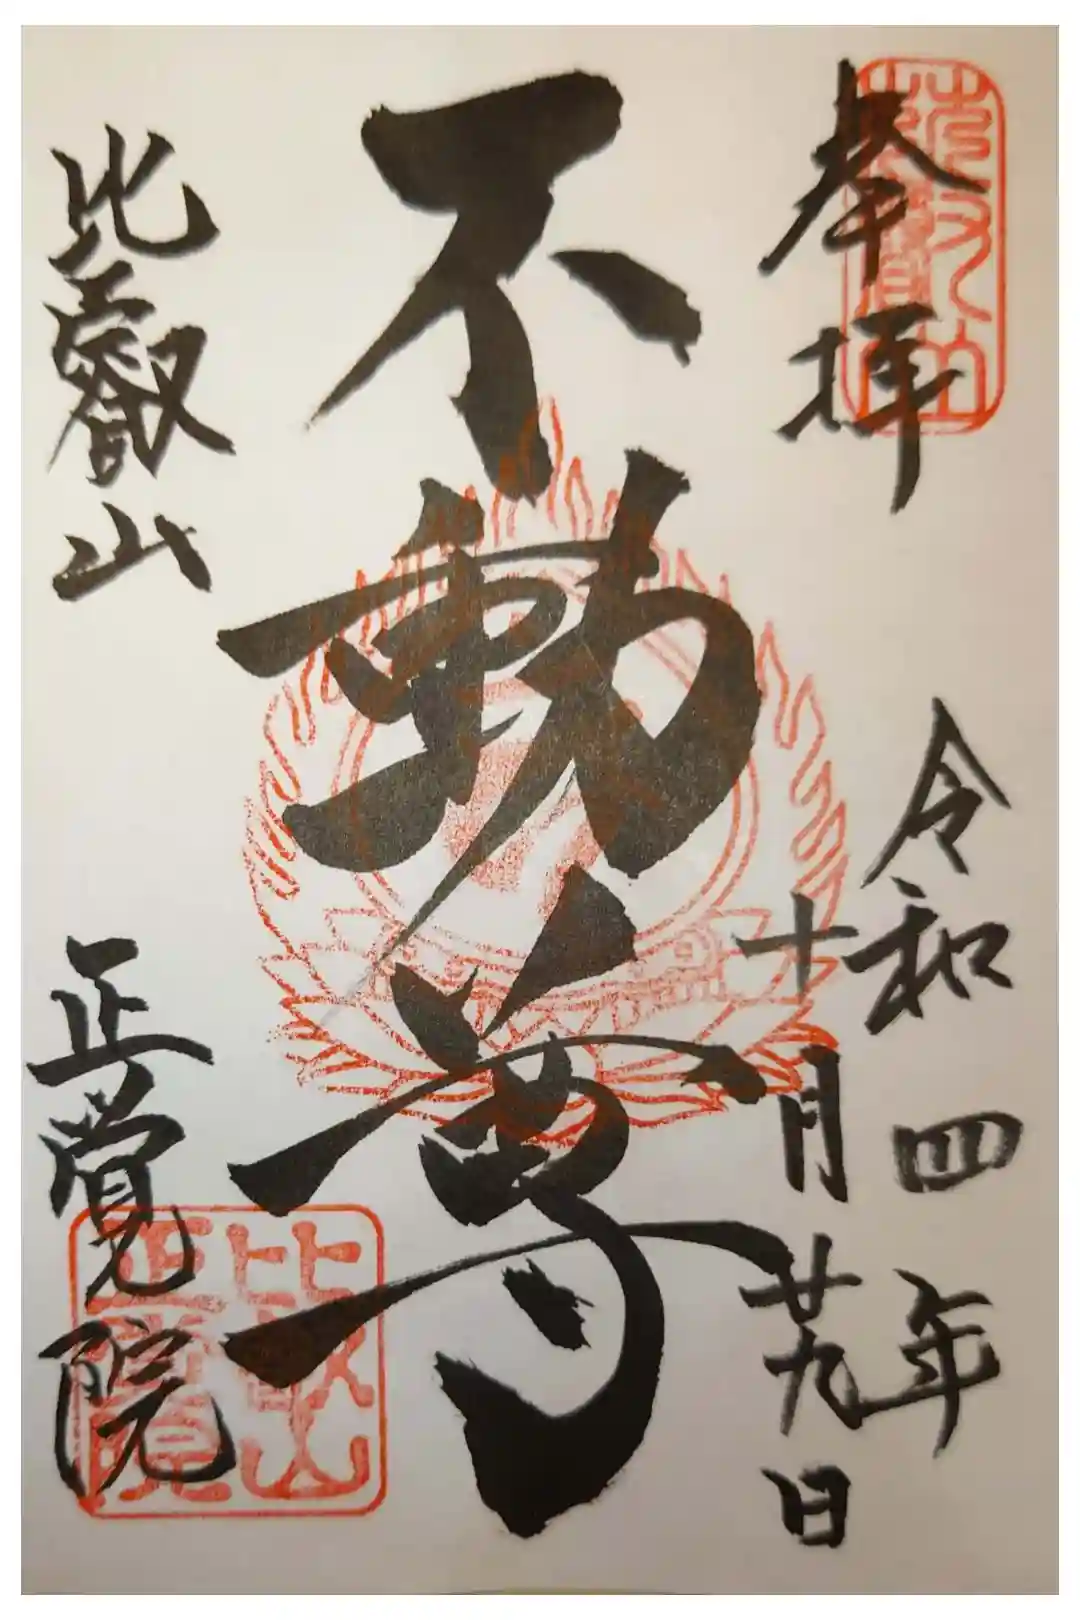 奉拝
令和四年
十月廿九日
不動尊
比叡山
正覚院
比叡山
正覚院